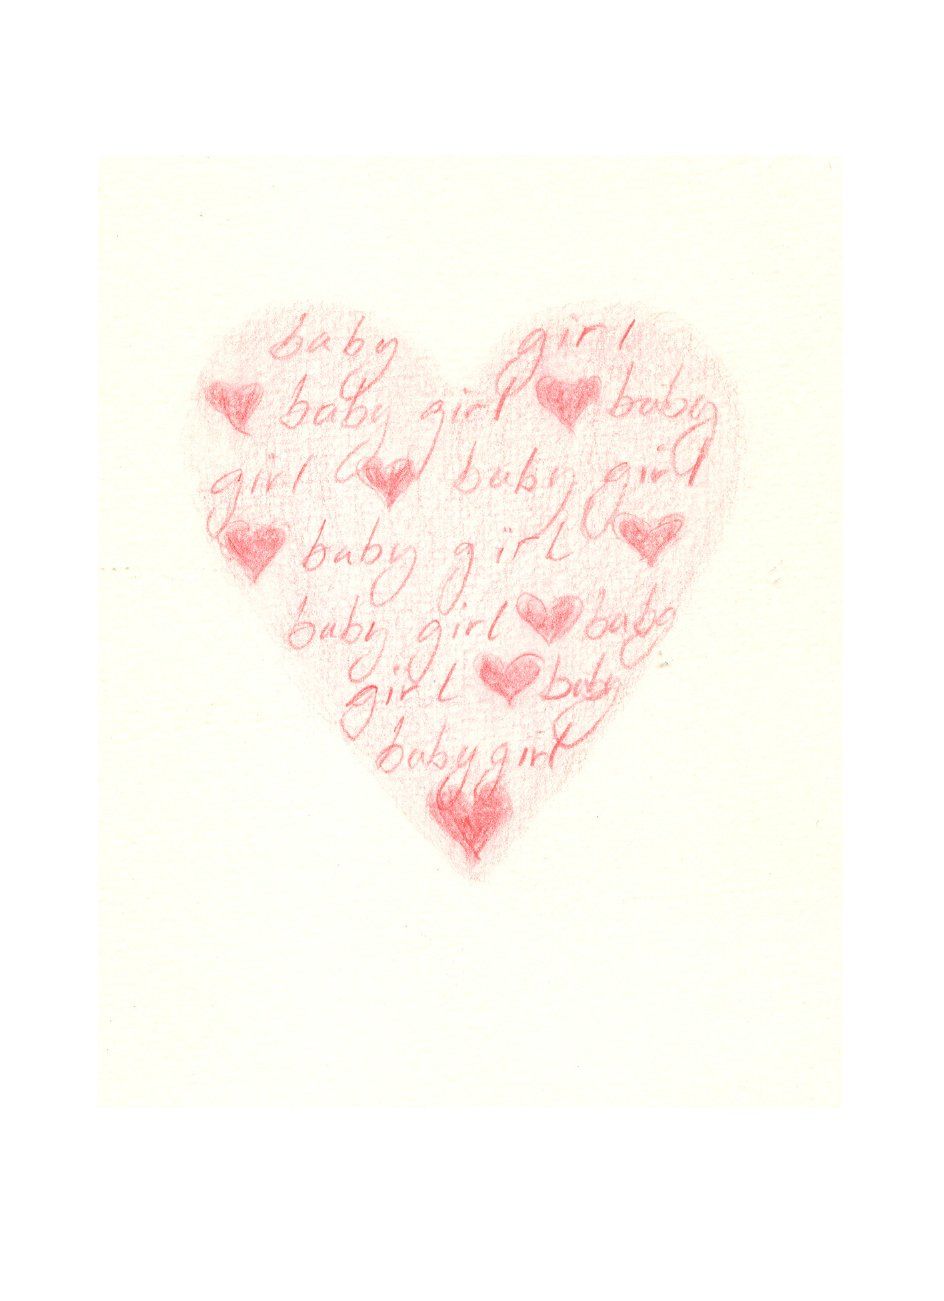 baby girl
baby girl baby
girl baby girl
baby girl
baby girl baby
girl baby
baby girl